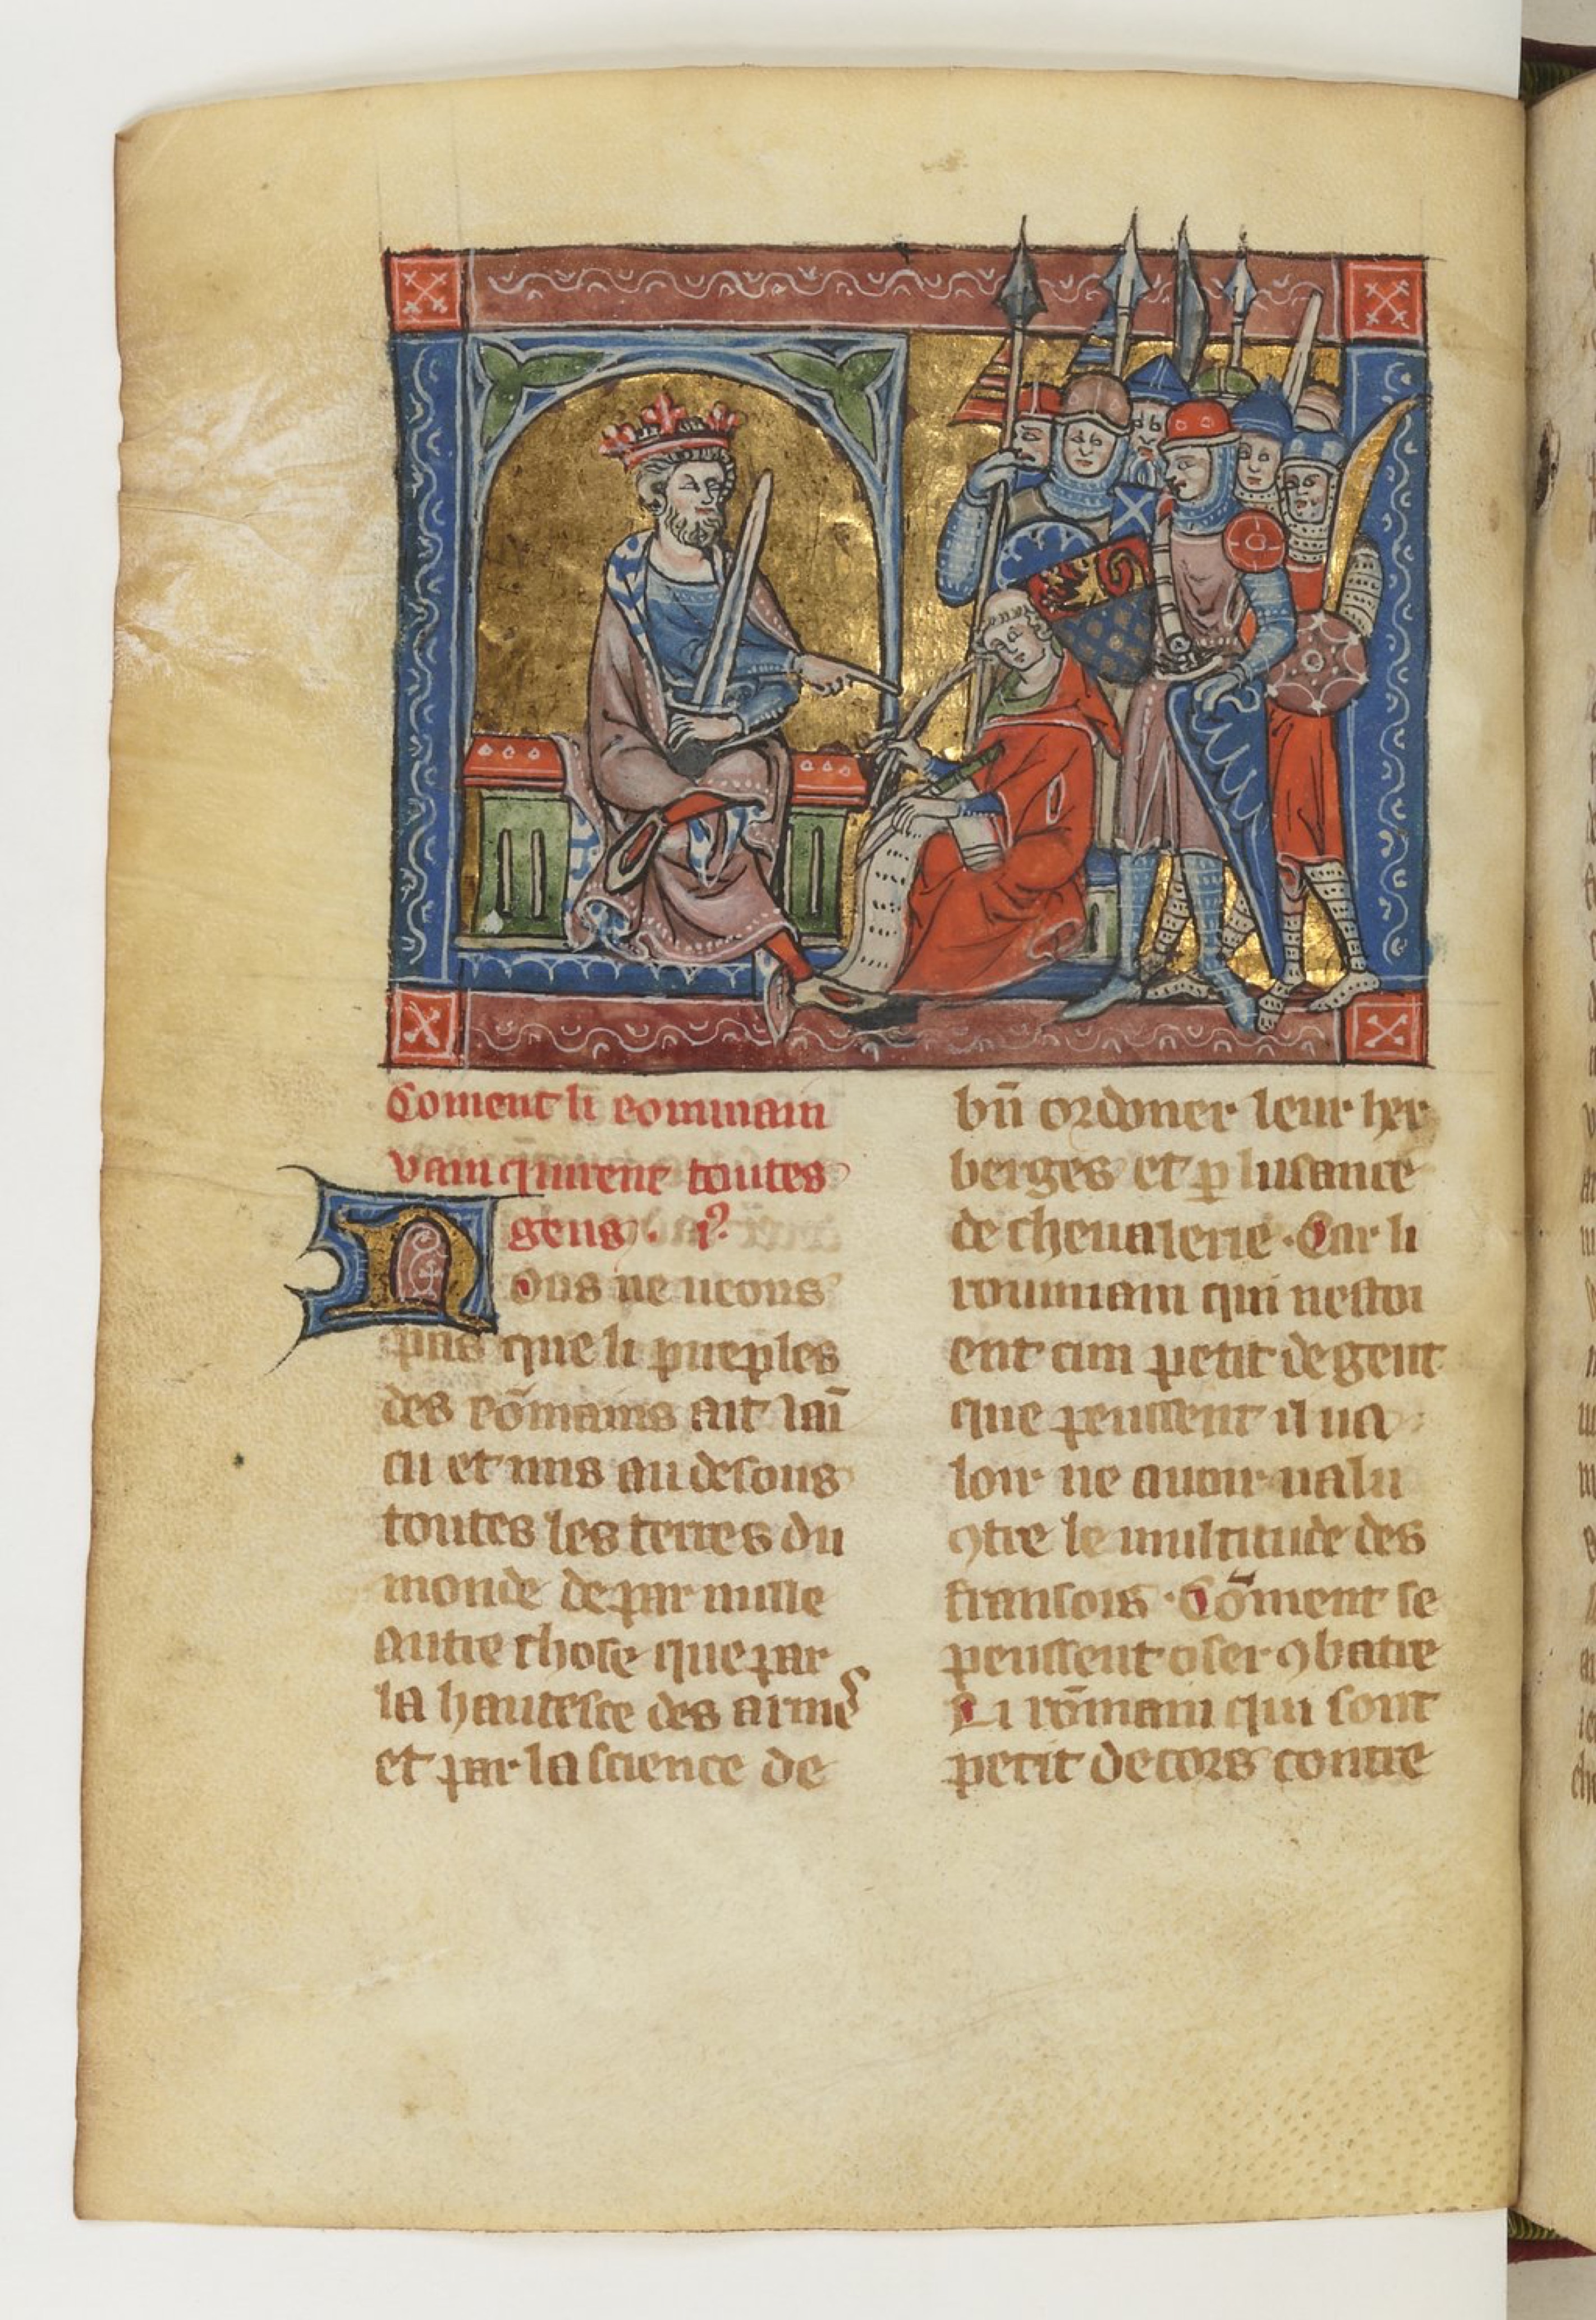 Coment li rommain
vainquirent toutes
gens . i.
Nous ne ueons
pas que li pueples
des rōmains ait uaī
cu et mis au desous
toutes les terres du
monde de par nulle
autre chose que par
la hautesce des armes
et par la science de
bn̄ ordoner leur her
berges et ꝑ lusance
de cheualerie . Car li
roumain qui nestoi
ent cun petit de gent
que peussent il ua
loir ne auoir ualu
ꝯtre le multitude des
fransois . Cōment se
peussent oser ꝯbatre
Li rōmain qui sont
petit de cors contre